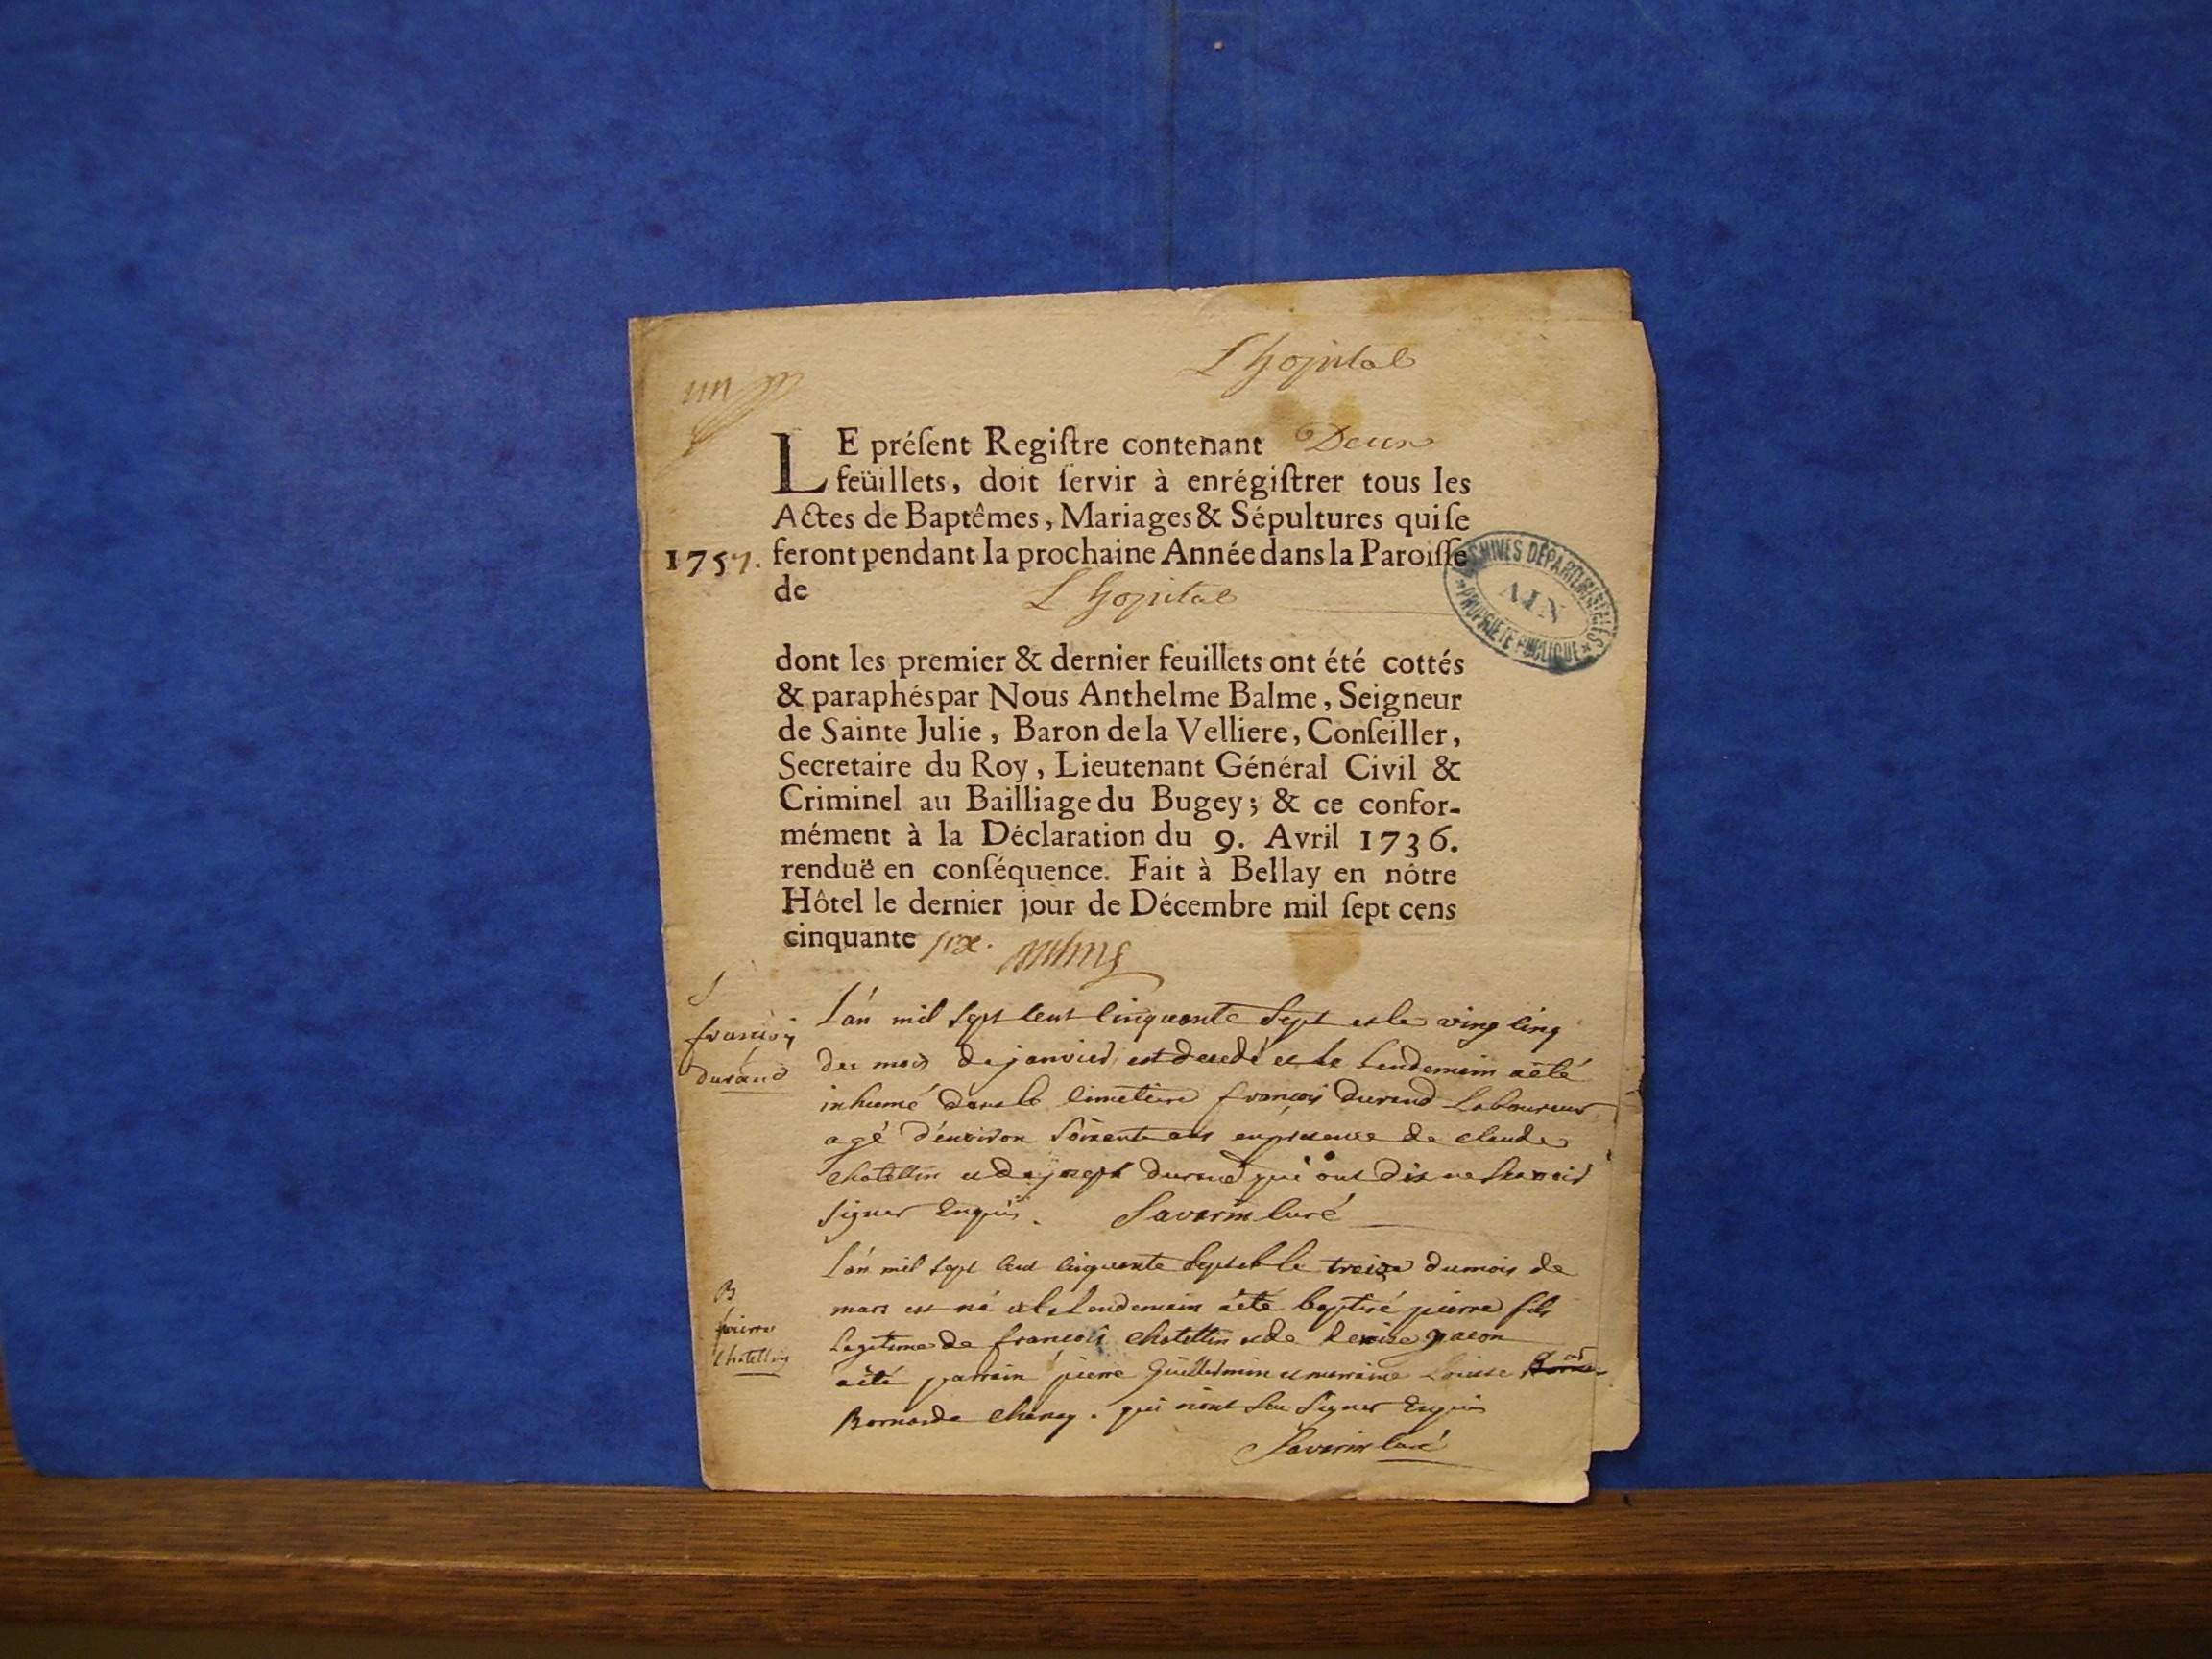 L'hopital
un
LE préſent Regiſtre contenant Deux
feüillets, doit ſervir à enrégiſtrer tous les
Actes de Baptêmes, Mariages & Sépultures qui ſe
1757. feront pendant la prochaine Année dans la Paroiſſe
de L'hopital
ARCHIVES DÉPARTEMENTALES
AIN
PROPRIÉTÉ PUBLIQUE
dont les premier & dernier feuillets ont été cottés
& paraphés par Nous Anthelme Balme, Seigneur
de Sainte Julie, Baron de la Velliere, Conſeiller,
Secretaire du Roy, Lieutenant Général Civil &
Criminel au Bailliage du Bugey; & ce confor-
mément à la Déclaration du 9. Avril 1736.
renduë en conſéquence. Fait à Bellay en nôtre
Hôtel le dernier jour de Décembre mil ſept cens
cinquante six.
S
francois
durand
L'án mil sept cent cinquante sept et le ving cinq
du mois de janvier est decedé et le lendemain a été
inhumé dans le cimetiere françois durand laboureur
agé d'environ soixante ans en presence de claude
chatellin et de joseph durand qui ont dit ne scavoir
signer Enquis. Savarin curé
B
pierre
chatellin
L'án mil sept cent cinquante sept et le treize du mois de
mars est né et le lendemain a été baptisé pierre fils
legitime de francois chatellin et de denise pacon
a été parrain pierre Guillermin et marraine Louise
Bernarde chaney. qui n'ont seu signer Enquis
Savarin curé